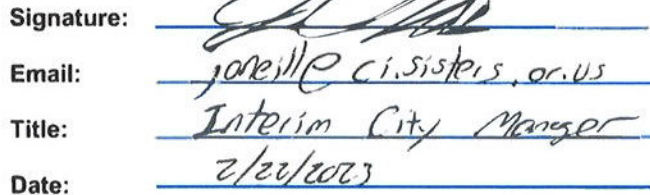 Signature:
Email: joneill@ci.sisters.or.us
Title: Interim City Manager
Date: 2/22/2023